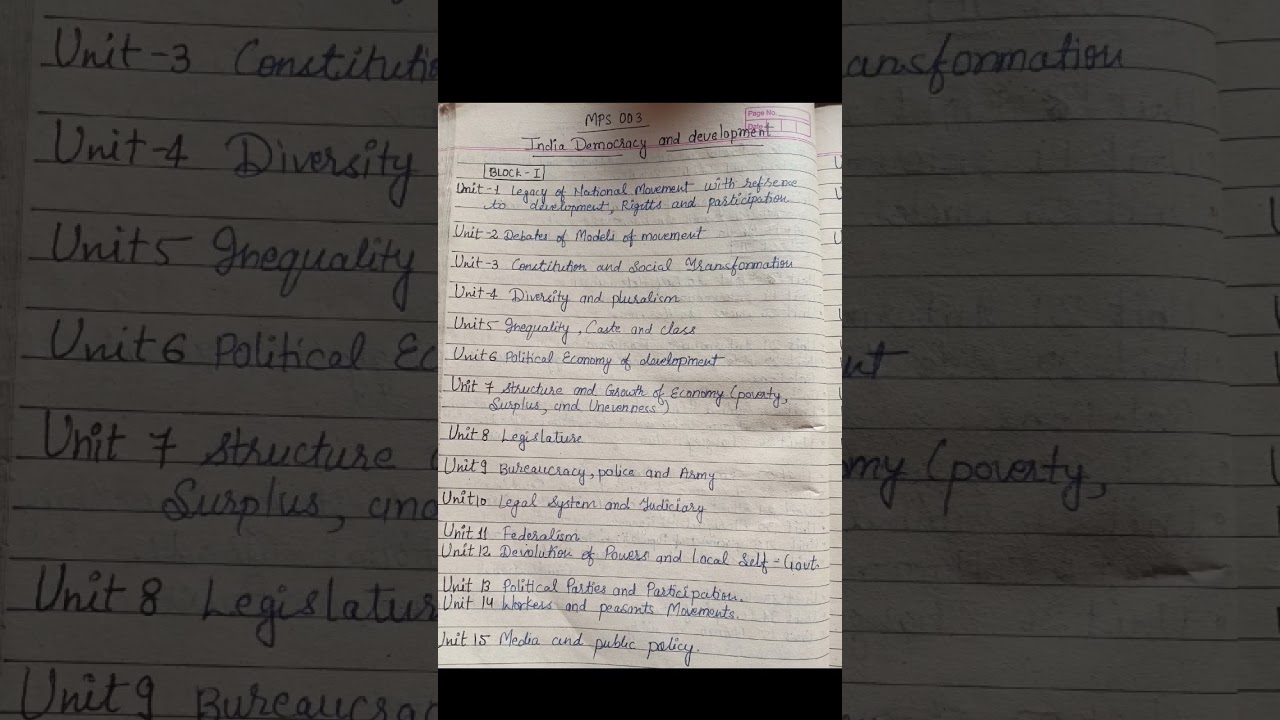 MPS 003
Page No.
Date
India Democracy and development
BLOCK-I
Unit-1 Legacy of National Movement with refrence
to development, Rigtts and participation
Unit-2 Debates of Models of movement
Unit-3 Constitution and Social Transformation
Unit-4 Diversity and pluralism
Unit5 Inequality, Caste and class
Unit6 Political Economy of development
Unit 7 Structure and Growth of Economy (poverty,
Surplus, and Unevenness)
Unit 8 Legislature
Unit9 Bureaucracy, police and Army
Unit10 Legal System and Judiciary
Unit 11 Federalism
Unit 12 Devolution of Powers and Local Self-Govt.
Unit 13 Political Parties and Participation.
Unit 14 Workers and peasants Movements.
Unit 15 Media and public policy.